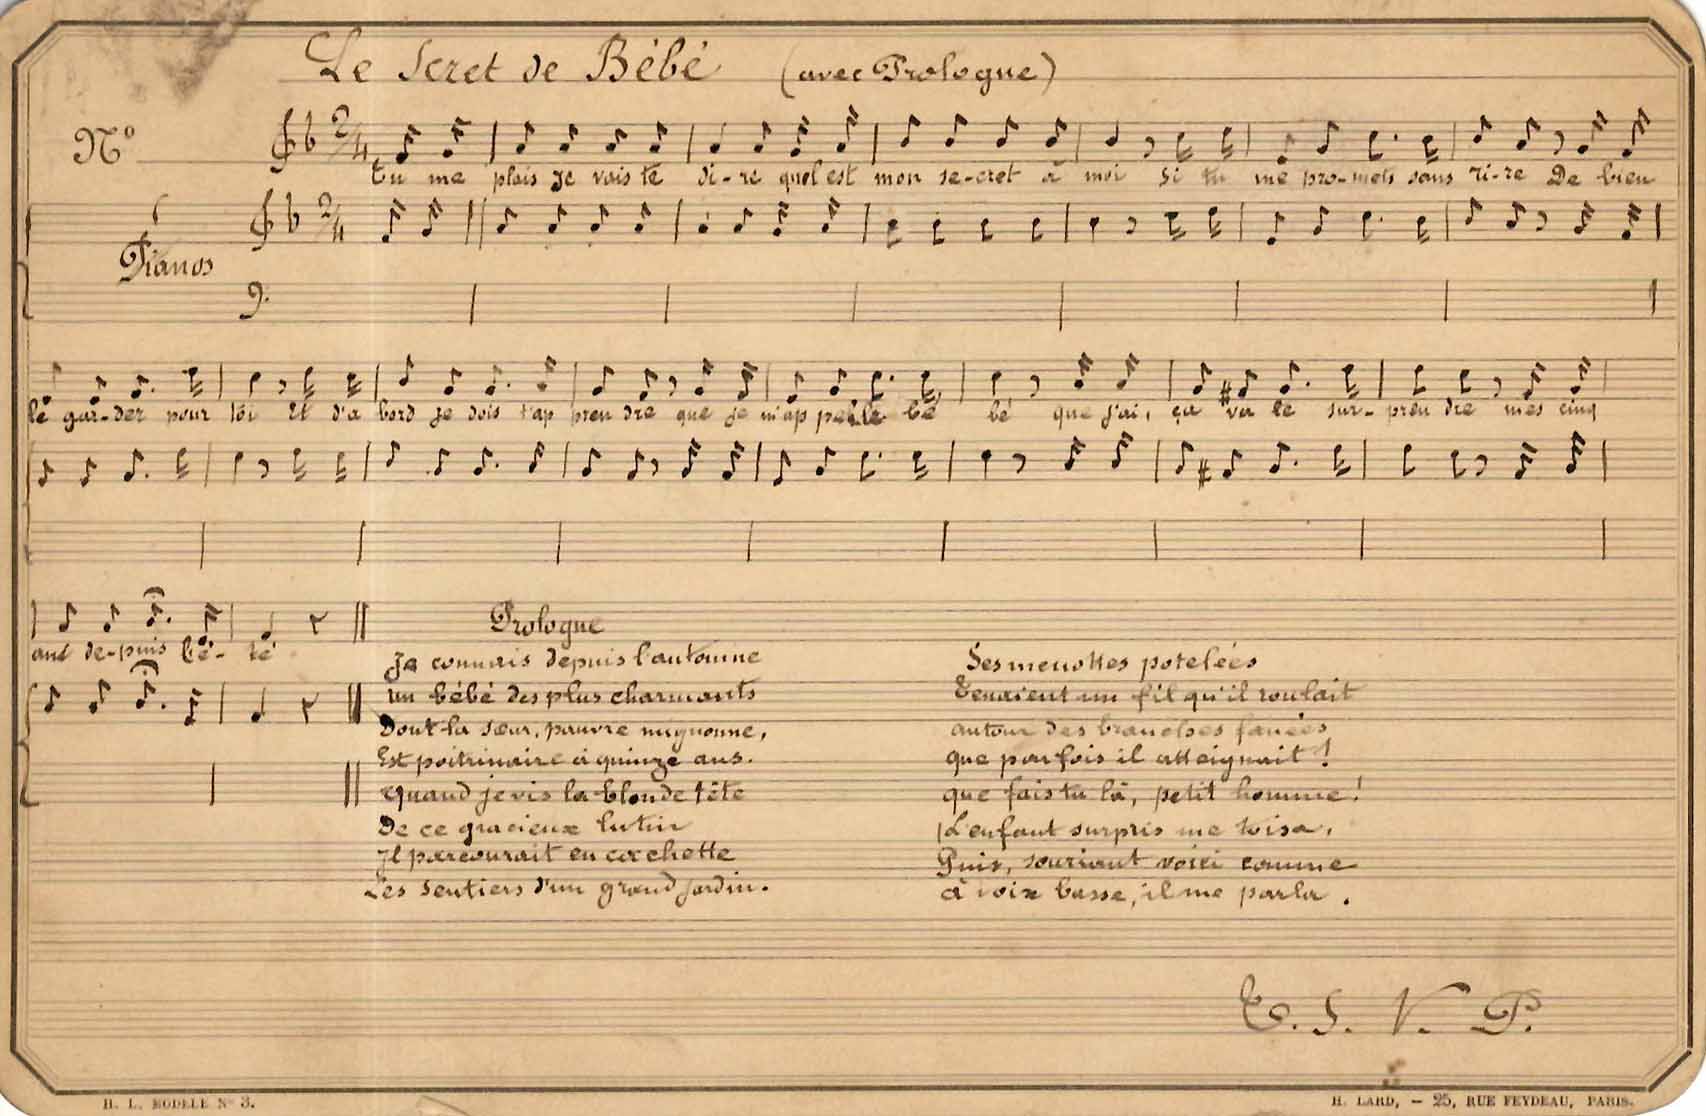 Le Scret de Bébé (avec Prologue)
Nº
Tu me plais Je vais te di-re quel est mon se-cret à moi Si tu me pro-mets sans ri-re De bien
Pianos
le gar-der pour toi Et d'a bord je dois t'ap pren dre que je m'ap pelle bé bé que j'ai, ça va te sur-pren dre mes cinq
ans de-puis l'é-té
Prologue
Je connais depuis l'automne
un bébé des plus charmants
Dont la sœur, pauvre mignonne,
Est poitrinaire à quinze ans.
quand je vis la blonde tête
De ce gracieux lutin
Il parcourait en cachette
Les sentiers d'un grand jardin.
Ses menottes potelées
Tenaient un fil qu'il roulait
autour des branches fanées
que parfois il atteignait !
que fais tu là, petit homme !
L'enfant surpris me toisa,
Puis, souriant voici comme
à voix basse, il me parla.
T. S. V. P.
H. L. MODÈLE Nº 3.
H. LARD, – 25, RUE FEYDEAU, PARIS.